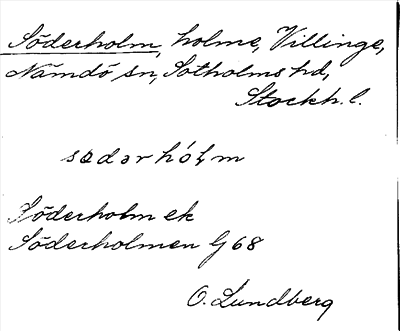 Söderholm, holme, Villinge,
Nämdö sn, Sotholms hd,
Stockh. l.
sødərhól̥m
Söderholm ek
Söderholmen G 68
O. Lundberg